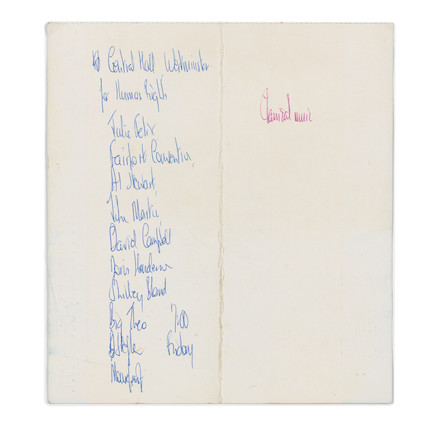 at Central Hall Westminster
for Human Rights
Julie Felix
Fairport Convention,
Al Stewart,
John Martin
David Campbell
Doris Henderson
Shirley Bland
Big Theo 7.00
Friday
Classical music